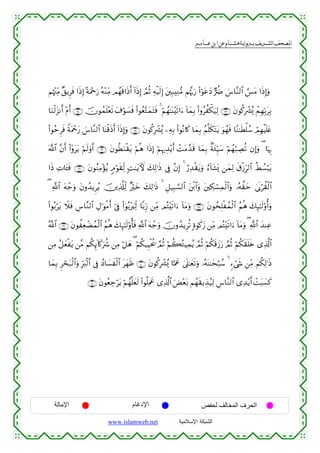 المصحف الشريف برواية هشام عن ابن عامر
وَإِذَا مَسَّ ٱلنَّاسَ ضُرٌّ دَعَوْا۟ رَبَّهُم مُّنِيبِينَ إِلَيْهِ ثُمَّ إِذَآ أَذَاقَهُم مِّنْهُ رَحْمَةً إِذَا فَرِيقٌ مِّنْهُم
بِرَبِّهِمْ يُشْرِكُونَ لِيَكْفُرُوا۟ بِمَآ ءَاتَيْنَٰهُمْ فَتَمَتَّعُوا۟ فَسَوْفَ تَعْلَمُونَ أَمْ أَنزَلْنَا
عَلَيْهِمْ سُلْطَٰنًا فَهُوَ يَتَكَلَّمُ بِمَا كَانُوا۟ بِهِۦ يُشْرِكُونَ وَإِذَآ أَذَقْنَا ٱلنَّاسَ رَحْمَةً فَرِحُوا۟
بِهَا وَإِن تُصِبْهُمْ سَيِّئَةٌۢ بِمَا قَدَّمَتْ أَيْدِيهِمْ إِذَا هُمْ يَقْنَطُونَ أَوَلَمْ يَرَوْا۟ أَنَّ ٱللَّهَ
يَبْسُطُ ٱلرِّزْقَ لِمَن يَشَآءُ وَيَقْدِرُ إِنَّ فِى ذَٰلِكَ لَءَايَٰتٍ لِّقَوْمٍ يُؤْمِنُونَ فَـَٔاتِ ذَا
ٱلْقُرْبَىٰ حَقَّهُۥ وَٱلْمِسْكِينَ وَٱبْنَ ٱلسَّبِيلِ ذَٰلِكَ خَيْرٌ لِّلَّذِينَ يُرِيدُونَ وَجْهَ ٱللَّهِ
وَأُو۟لَٰٓئِكَ هُمُ ٱلْمُفْلِحُونَ وَمَآ ءَاتَيْتُم مِّن رِّبًا لِّيَرْبُوَا۟ فِىٓ أَمْوَٰلِ ٱلنَّاسِ فَلَا يَرْبُوا۟
عِندَ ٱللَّهِ وَمَآ ءَاتَيْتُم مِّن زَكَوٰةٍ تُرِيدُونَ وَجْهَ ٱللَّهِ فَأُو۟لَٰٓئِكَ هُمُ ٱلْمُضْعِفُونَ ٱللَّهُ
ٱلَّذِى خَلَقَكُمْ ثُمَّ رَزَقَكُمْ ثُمَّ يُمِيتُكُمْ ثُمَّ يُحْيِيكُمْ هَلْ مِن شُرَكَآئِكُم مَّن يَفْعَلُ مِن
ذَٰلِكُم مِّن شَىْءٍ سُبْحَٰنَهُۥ وَتَعَٰلَىٰ عَمَّا يُشْرِكُونَ ظَهَرَ ٱلْفَسَادُ فِى ٱلْبَرِّ وَٱلْبَحْرِ بِمَا
كَسَبَتْ أَيْدِى ٱلنَّاسِ لِيُذِيقَهُم بَعْضَ ٱلَّذِى عَمِلُوا۟ لَعَلَّهُمْ يَرْجِعُونَ
الحرف المخالف لحفص الإدغام الإمالة
الشبكة الإسلامية www.islamweb.net